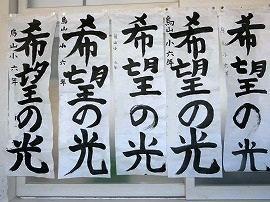 希望の光
烏山小六年
希望の光
希望の光
烏山小六年
希望の光
烏山小六年
希望の光